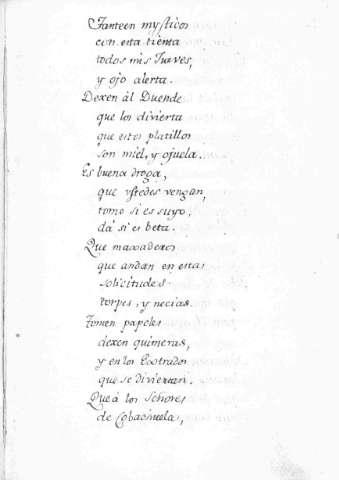 Tanteen mysticos
con esta tienta
todos mis Jueves,
y ojo alerta.
Dexen âl Duende
que los divierta
que estos platillos
son miel, y ojuela.
Es buena droga,
que ustedes vengan,
tomo si es suyo,
dâ si es beta.
Que maxaderos
que andan en estas
solicitudes
torpes, y necias.
Tomen papeles
dexen quimeras,
y en los Estrados
que se diviertan.
Que â los Señores
de Cobachuela,